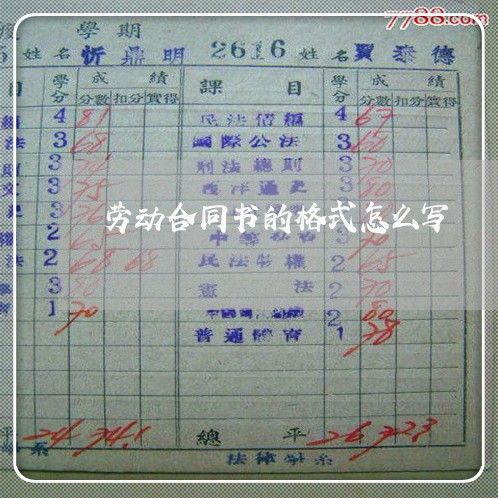 7788.com
學期
姓名 忻鼎明 2616 姓名 賈泰德
目 學分 成績 課目 學分 成績
分數 扣分 實得 分數 扣分 實得
4 81 民法債編 4 67
法 3 68 國際公法 3 60
3 刑法總則 3 70
3 75 西洋通史 3 80
劳动合同书的格式怎么写
2 65 3 70
法 2 68 68 民法物權 2 65
3 80 憲法 2 70
1 70 2 80
普通體育 1 78
平 24 74.1 總平 26 72.3
系 法律學系